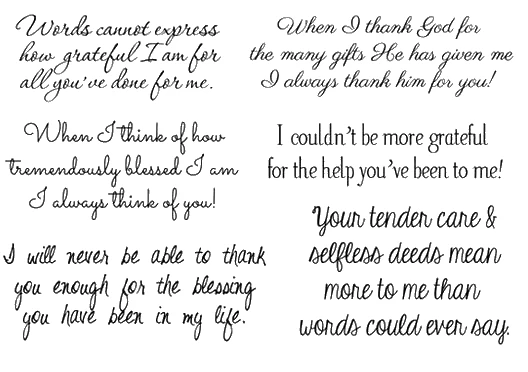 Words cannot express
how grateful I am for
all you've done for me.
When I thank God for
the many gifts He has given me
I always thank him for you!
When I think of how
tremendously blessed I am
I always think of you!
I couldn't be more grateful
for the help you've been to me!
I will never be able to thank
you enough for the blessing
you have been in my life.
Your tender care &
selfless deeds mean
more to me than
words could ever say.